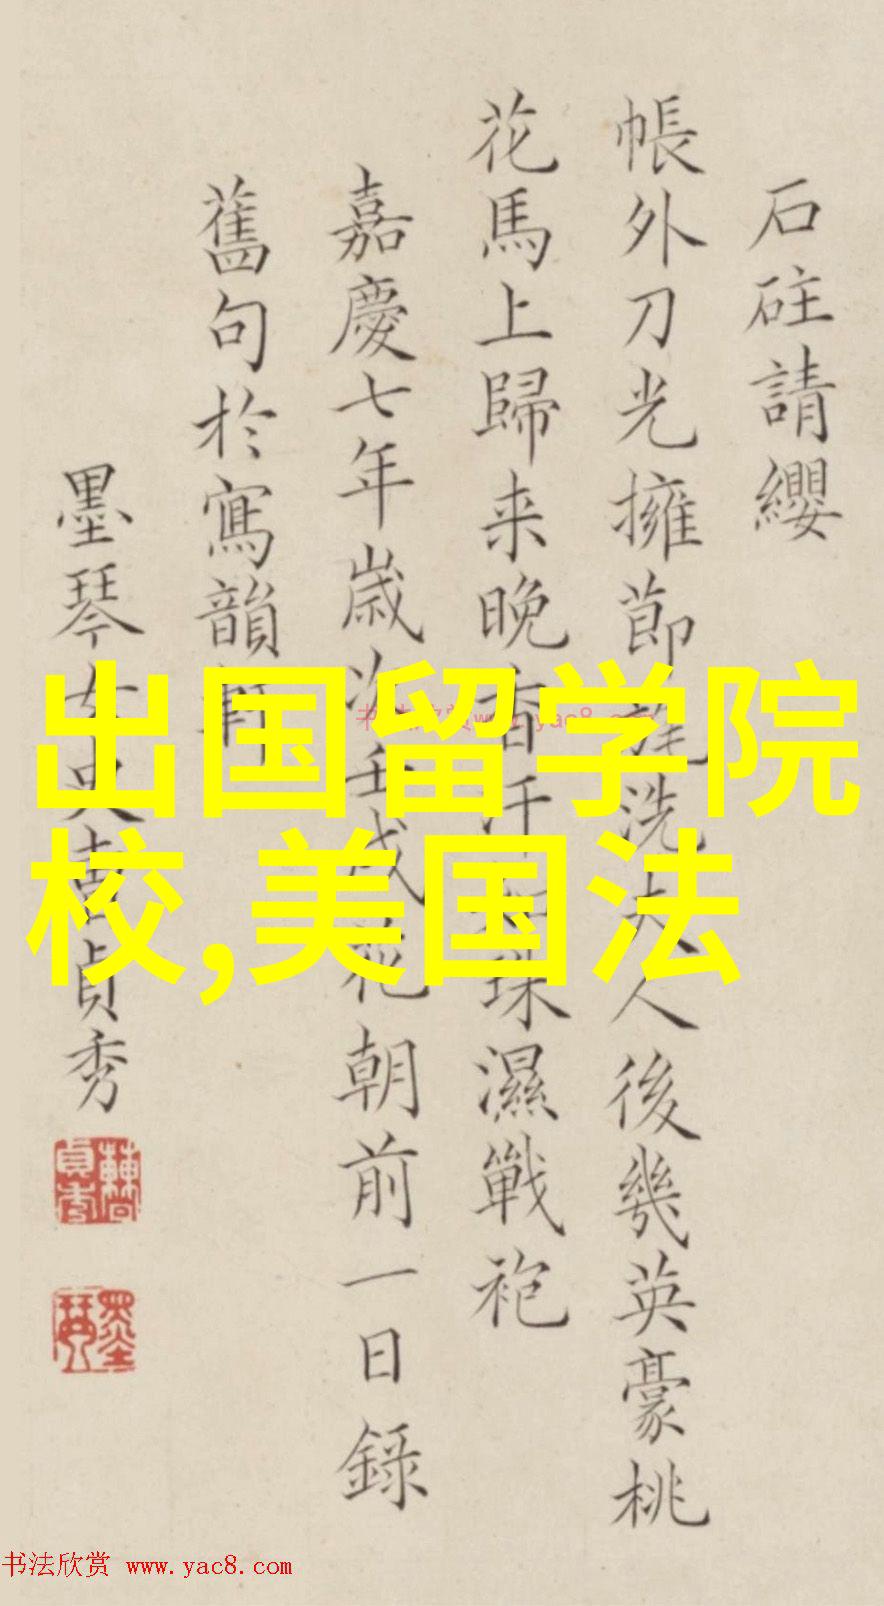 石砫請纓
帳外刀光擁節旄洗夫人後幾英豪桃
花馬上歸来晚香汗如珠濕戰袍
嘉慶七年歲次壬戌花朝前一日錄
舊句於寫韻軒
墨琴女史曹貞秀
出国留学院
校,美国法
书法欣赏 www.yac8.com